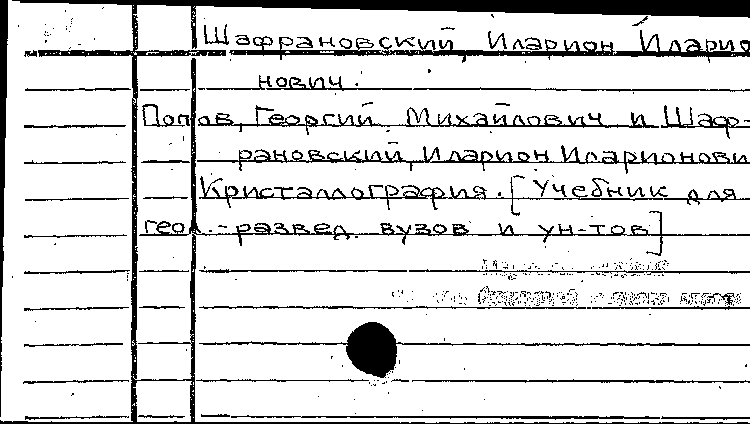 Шафрановский, Иларион Иларио
нович.
Попов, Георгий Михайлович и Шаф-
рановский, Иларион Иларионови
Кристаллография. [Учебник для
геол.-развед. вузов и ун-тов]